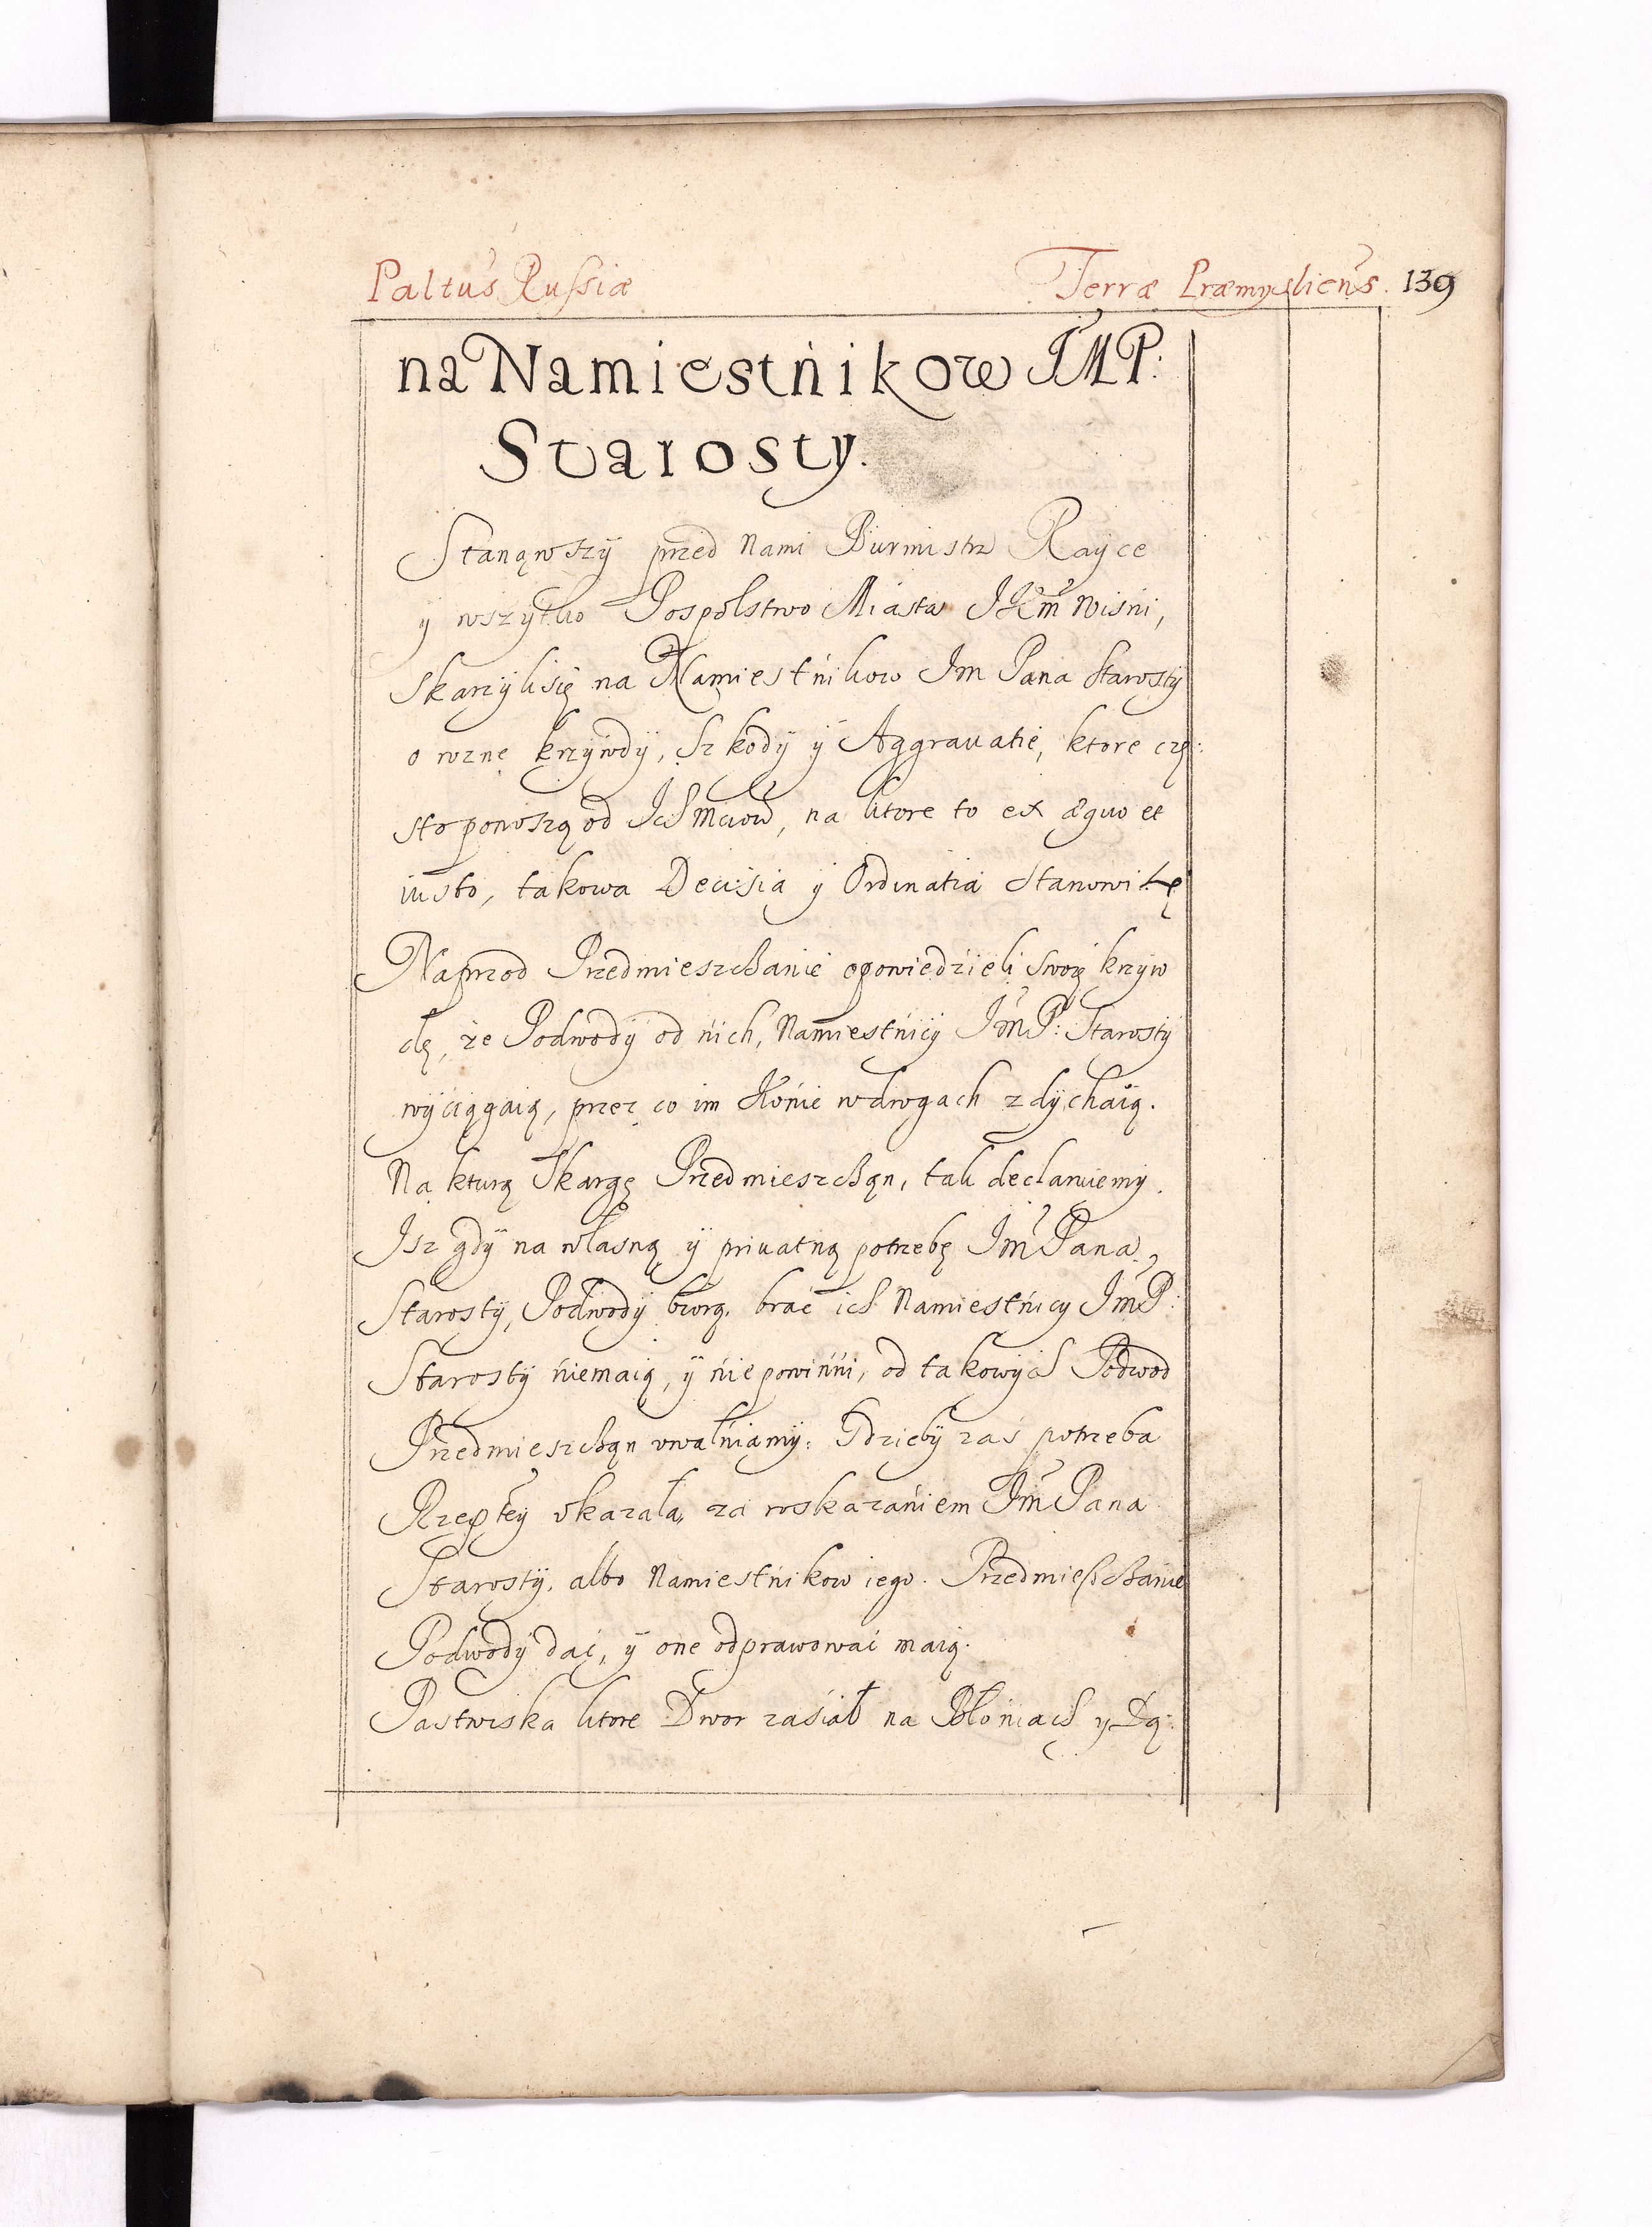 Paltus Russiæ Terræ Præmysliens. 139
na Namiestńikow JMP:
Starosty.
Stanąwszÿ przed Nami Burmistrz Rayce
ÿ wszÿtko Pospolstwo Miasta JKM Wisńi,
Skarzÿli się na Namiestńikow Jm Pana Starostÿ
o rozne krzÿwdÿ, Szkodÿ ÿ Aggrauatie, ktore czę:
sto ponoszą od Ich Mciow, na ktore to ex æquo et
iusto, takowa Decisia ÿ Ordinatia Stanowi się
Naprzod Przedmieszchanie opowiedźieli swoię krzÿw
dę, że Podwodÿ od ńich, Namiestńicÿ JmP: Starostÿ
wÿciągaią, przez co im Końie w drogach zdÿchaią.
Na kturą Skargę Przedmieszchan, tak declaruiemy.
Jsz gdÿ na własną ÿ priuatną potrzebę Jm Pana
Starostÿ, Podwodÿ biorą, brać ich Namiestńicy JmP:
Starostÿ ńiemaią, ÿ ńiepowinńi, od takowÿch Podwod
Przedmieszchan uwalńiamÿ: Gdziebÿ zaś potrzeba
Rzeptey ukazała, za roskazańiem Jm Pana
Starostÿ, albo Namiestńikow iego. Przedmieszchanie
Podwodÿ dać, ÿ one odprawować maią.
Pastwiska ktore Dwor zasiał na Błońiach y Dą: